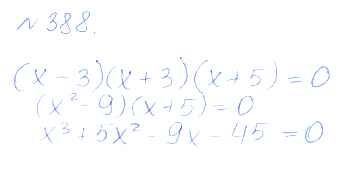 №388.
(x - 3)(x + 3)(x + 5) = 0
(x² - 9)(x + 5) = 0
x³ + 5x² - 9x - 45 = 0